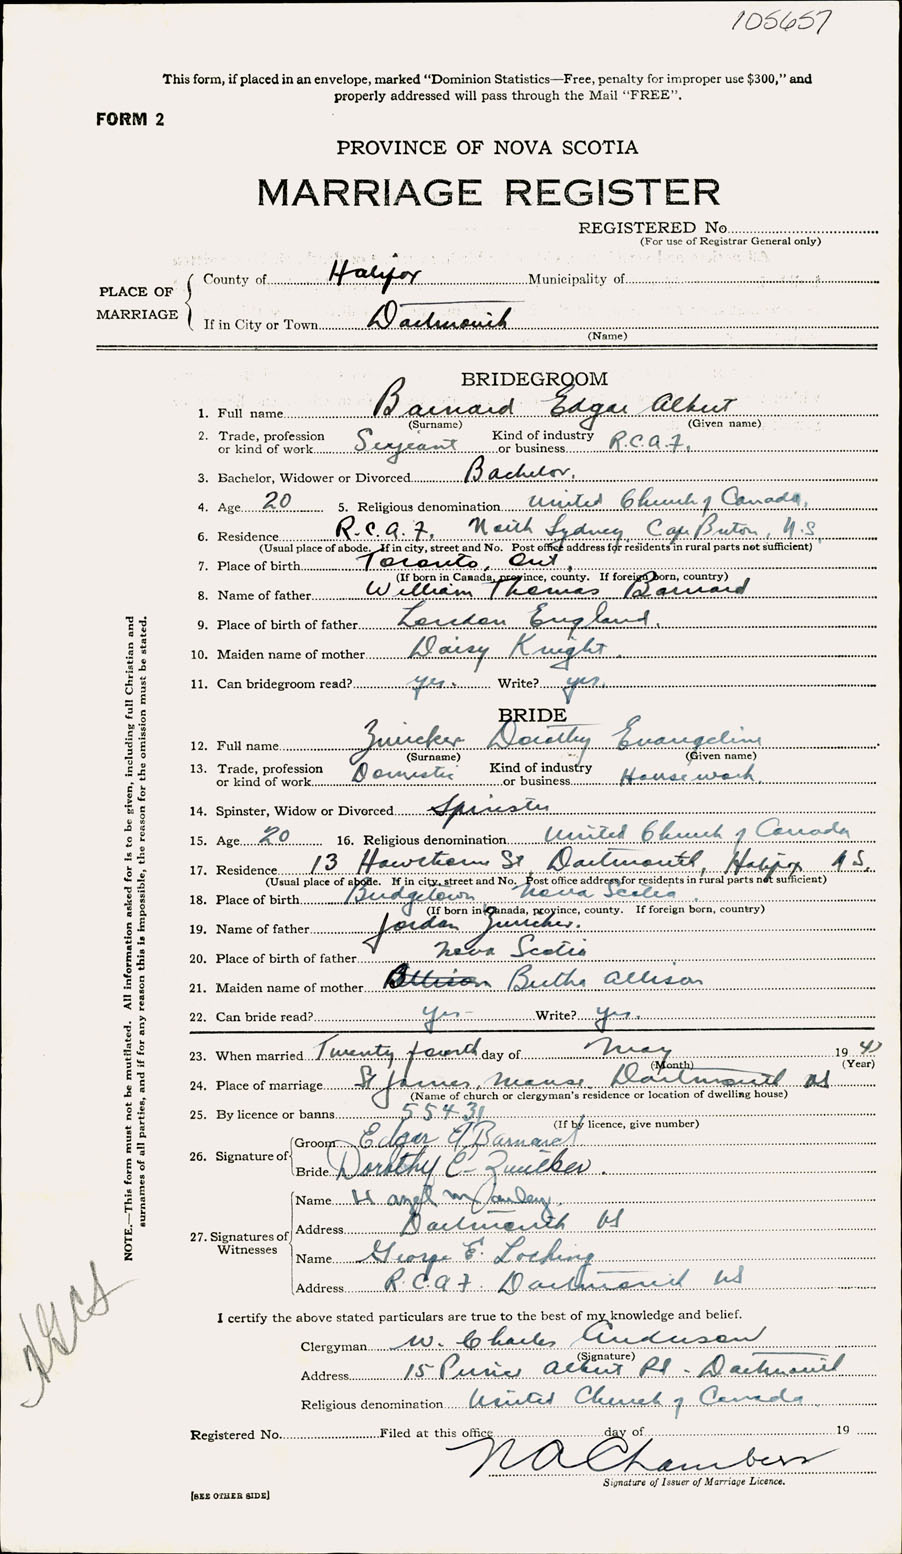 105657
This form, if placed in an envelope, marked "Dominion Statistics—Free, penalty for improper use $300," and
properly addressed will pass through the Mail "FREE".
FORM 2
PROVINCE OF NOVA SCOTIA
MARRIAGE REGISTER
REGISTERED No.
(For use of Registrar General only)
PLACE OF MARRIAGE
County of Halifax Municipality of
If in City or Town Dartmouth
(Name)
BRIDEGROOM
1. Full name Barnard Edgar Albert
(Surname) (Given name)
2. Trade, profession or kind of work Sergeant Kind of industry or business R.C.A.F.
3. Bachelor, Widower or Divorced Bachelor.
4. Age 20 5. Religious denomination United Church of Canada,
6. Residence R.C.A.F. North Sydney Cape Breton, N.S.
(Usual place of abode. If in city, street and No. Post office address for residents in rural parts not sufficient)
7. Place of birth Toronto, Ont.
(If born in Canada, province, county. If foreign born, country)
8. Name of father William Thomas Barnard
9. Place of birth of father London England.
10. Maiden name of mother Daisy Knight.
11. Can bridegroom read? yes. Write? yes.
BRIDE
12. Full name Zwicker Dorothy Evangeline
(Surname) (Given name)
13. Trade, profession or kind of work Domestic Kind of industry or business Housework.
14. Spinster, Widow or Divorced Spinster
15. Age 20 16. Religious denomination United Church of Canada
17. Residence 13 Hawthorne St Dartmouth, Halifax N.S.
(Usual place of abode. If in city, street and No. Post office address for residents in rural parts not sufficient)
18. Place of birth Bridgetown Nova Scotia
(If born in Canada, province, county. If foreign born, country)
19. Name of father Jordan Zwicker.
20. Place of birth of father Nova Scotia
21. Maiden name of mother Allison Bertha Allison
22. Can bride read? yes- Write? yes.
23. When married Twenty fourth day of May 19
(Month) (Year)
24. Place of marriage St James, Manse Dartmouth NS
(Name of church or clergyman's residence or location of dwelling house)
25. By licence or banns 55431
(If by licence, give number)
26. Signature of
Groom Edgar A Barnard
Bride Dorothy E Zwicker.
27. Signatures of Witnesses
Name
Address Dartmouth NS
Name George E.
Address R.C.A.F. Dartmouth NS
I certify the above stated particulars are true to the best of my knowledge and belief.
Clergyman W. Charles Anderson
(Signature)
Address 15 Prince Albert Rd - Dartmouth
Religious denomination United Church of Canada
Registered No. Filed at this office day of 19
N A Chambers
Signature of Issuer of Marriage Licence.
[SEE OTHER SIDE]
NOTE.—This form must not be mutilated. All information asked for is to be given, including full Christian and
surnames of all parties, and if for any reason this is impossible, the reason for the omission must be stated.